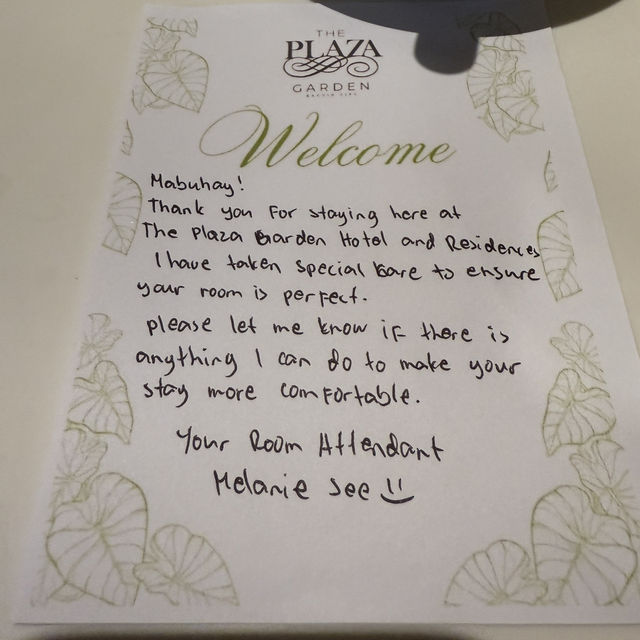 THE
PLAZA
GARDEN
BAGUIO CITY
Welcome
Mabuhay!
Thank you for staying here at
The Plaza Garden Hotel and Residences
I have taken special care to ensure
your room is perfect.
please let me know if there is
anything I can do to make your
stay more comfortable.
Your Room Attendant
Melanie See